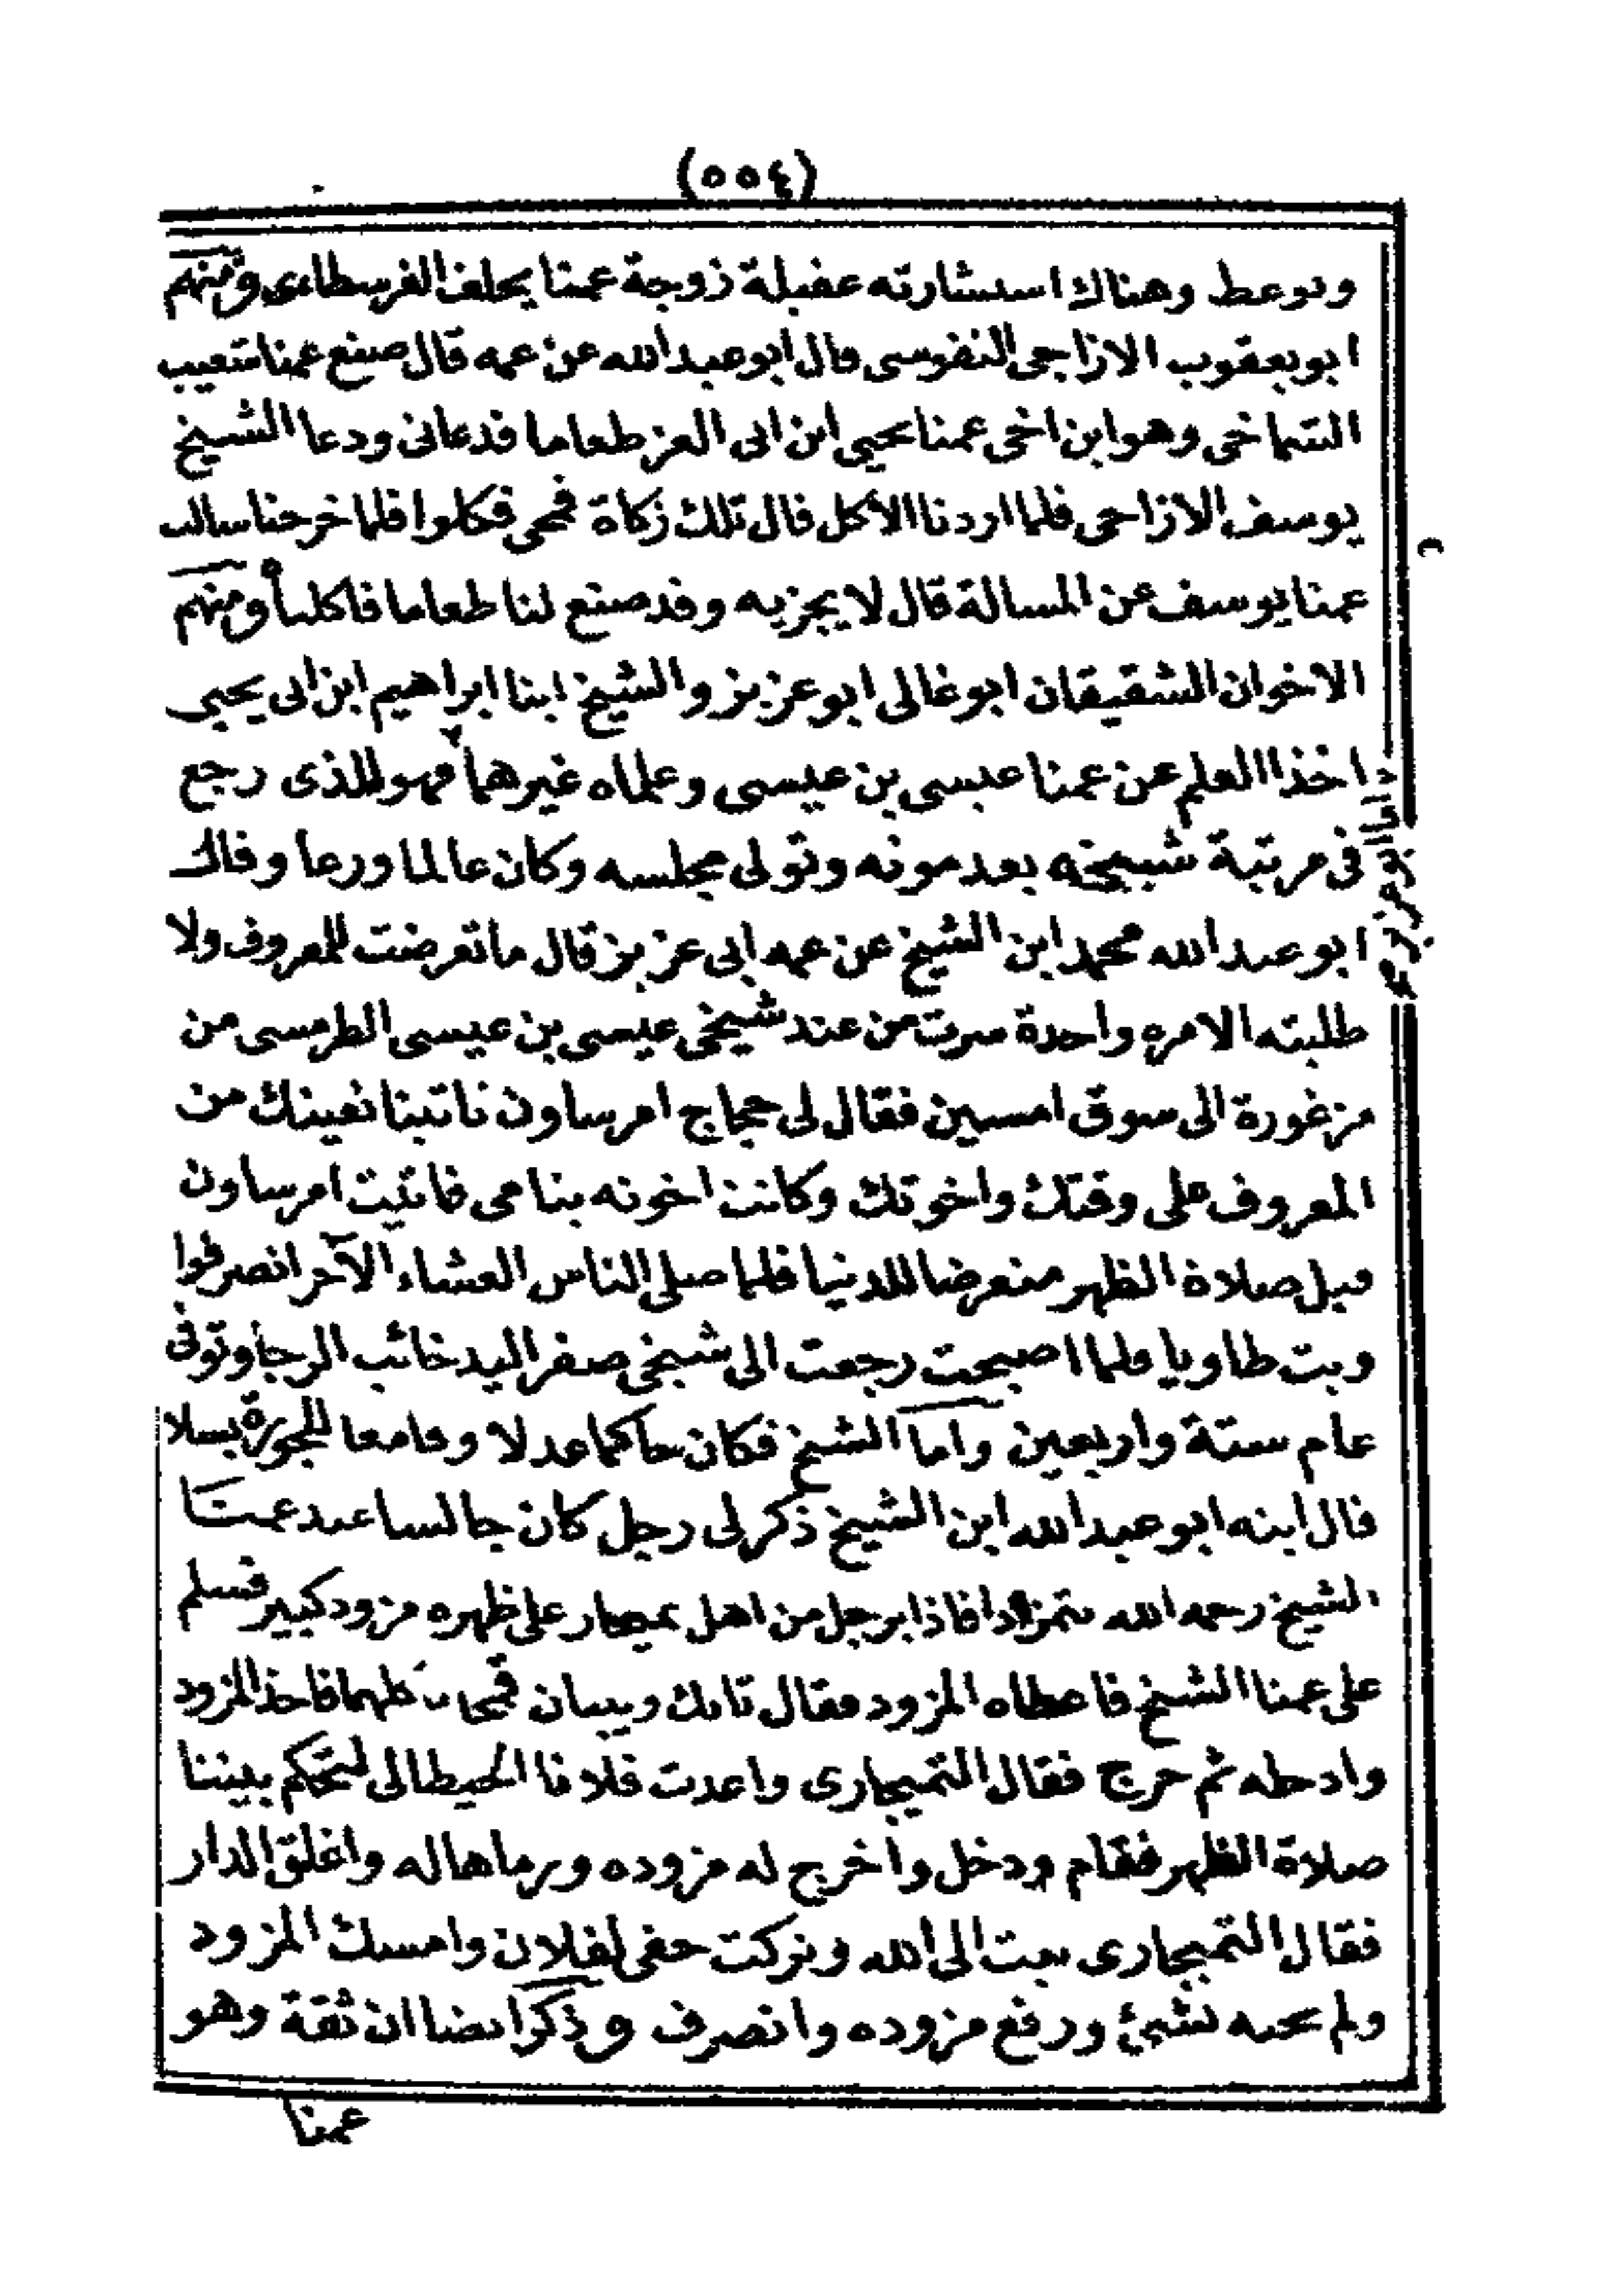 (٥٥٤)
وهناك استشارته عقيلة زوجة عمنا يخلف الفرسطاءى ومنهم
ابو يعقوب الازاجى النفوسى قال ابو عبد الله عن عمه قال صنع عمنا شعيب
الشماخى وهو ابن اخى عمنا يحيى ابن ابى العز طعاما فدعانى ودعا الشيخ
يوسف الازاجى فلما اردنا الاكل قال تلك زكاة قمحى فكلوا فلما خرجنا سالت
عمنا يوسف عن المسالة قال لا يجزيه وقد صنع لنا طعاما فاكلنا ومنهم
الاخوان الشقيقان ابو غالى ابو عزيز والشيخ ابنا ابراهيم ابن ابى يحيى
اخذا العلم عن عمنا عيسى بن عيسى وعلماه غيرهما فهو للذى رجع
فى مرتبة شيخه بعد موته وتولى مجلسه وكان عالما ورعا وقال
ابو عبد الله محمد ابن الشيخ عن عمه ابى عزيز قال ما تعرضت للمعروف ولا
طلبته الا مره واحدة سرت من عند شيخى عيسى بن عيسى الطرمسى من
مزغورة الى سوق امسين فقال لى حجاج امرساون ناتبنا نعينك من
المعروف على وقتك واخوتك وكانت اخوته بنا حى فاتيت امرساون
قبل صلاة الظهر متعرضا للدنيا فلما صلى الناس العشاء الآخر انصرفوا
وبت طاويا فلما اصبحت رجعت الى شيخى صفر اليد خائب الرجا وتوفى
عام ستة واربعين واما الشيخ فكان حاكما عدلا وقامعا للجورة بسلا
قال ابنه ابو عبد الله ابن الشيخ ذكر لى رجل كان جالسا عند عمنا
الشيخ رحمه الله فاذا برجل من اهل تميجار على ظهره مزود كبير فسلم
على عمنا الشيخ فاعطاه المزود فقال وبيسان كلهما فاخذ المزود
وادخله ثم خرج فقال التميجارى واعدت فلانا الحيطالى لتحكم بيننا
صلاة الظهر فقام ودخل واخرج له مزوده ورماها له واغلق الدار
فقال التميجارى تبت الى الله وتركت حقى لفلان وامسك المزود
ولم يجبه بشىء ورفع مزوده وانصرف وذكر ايضا ان ثقة وهو
عمنا